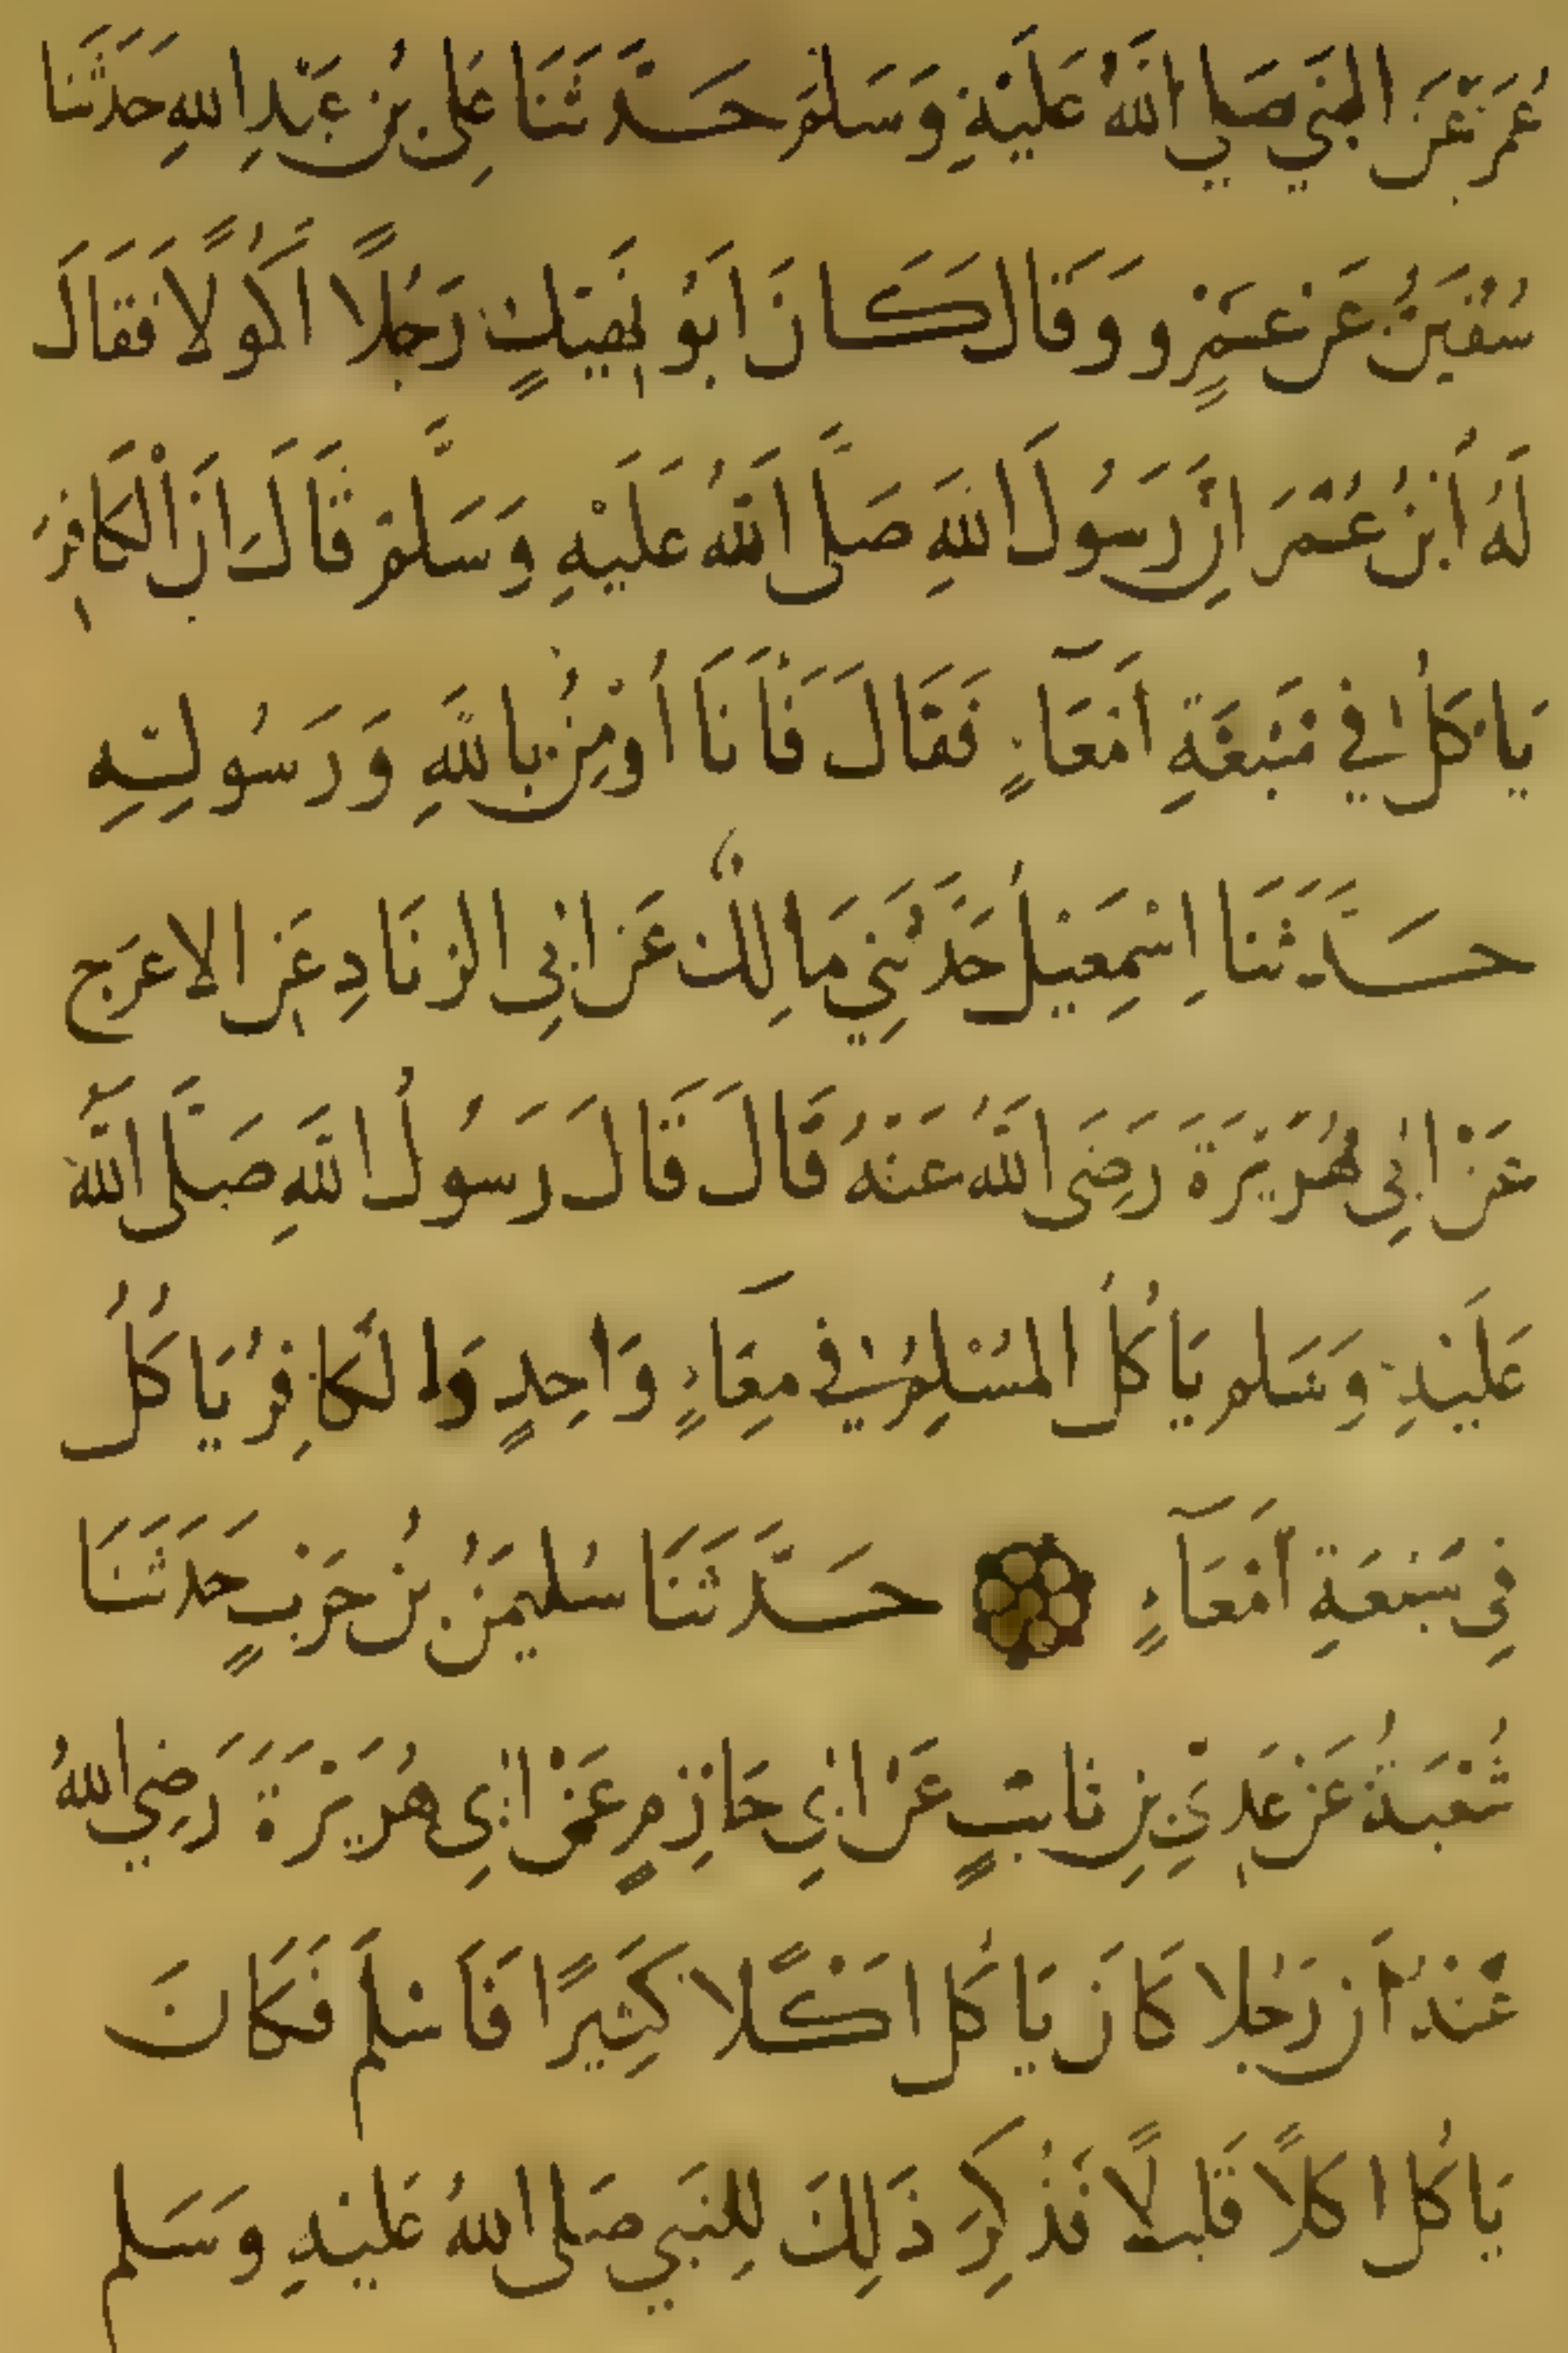 عُمَرَ عَنِ النَّبِيِّ صَلَّى اللَّهُ عَلَيْهِ وَسَلَّمَ حَدَّثَنَا عَلِيُّ بْنُ عَبْدِ اللهِ حَدَّثَنَا
سُفْيَنُ عَنْ عَمْرٍو وَقَالَ كَانَ أَبُو نَهِيكٍ رَجُلًا أَكُولًا فَقَالَ
لَهُ ابْنُ عُمَرَ اِنَّ رَسُولَ اللهِ صَلَّى اللهُ عَلَيْهِ وَسَلَّمَ قَالَ اِنَّ الْكَافِرَ
يَاكُلُ فِي سَبْعَةِ اَمْعَآءٍ فَقَالَ فَاَنَا اُوْمِنُ بِاللهِ وَرَسُولِهِ
حَدَّثَنَا اِسْمَعِيلُ حَدَّثَنِي مَالِكٌ عَنْ اَبِى الزِّنَادِ عَنِ الاعرَجِ
عَنْ اَبِى هُرَيْرَةَ رَضِىَ اللَّهُ عَنْهُ قَالَ قَالَ رَسُولُ اللَّهِ صَلَّى اللَّهُ
عَلَيْهِ وَسَلم يَاكُلُ المُسْلِمُ فِي مِعَاءٍ وَاحِدٍ وَالْكَافِرُ يَاكُلُ
فِي سَبْعَةِ اَمْعَآءٍ حَدَّثَنَا سُلَيمَنُ بْنُ حَرْبٍ حَدَثَنَا
شُعْبَةُ عَنْ عَدِيِّ بْنِ ثَابِتٍ عَنْ اَبِي حَازِمٍ عَنْ اَبِى هُرَيْرَةَ رَضِي اللهُ
عَنْهُ اَنَّ رَجُلا كَانَ يَاكُلُ اَكْلًا كَثِيرًا فَاَسْلَمَ فَكَانَ
يَاكُلُ اكلًا قَلِيلًا فَذُكِرَ ذَلِكَ لِلنَّبِي صَلى اللهُ عَلَيْهِ وَسَلم